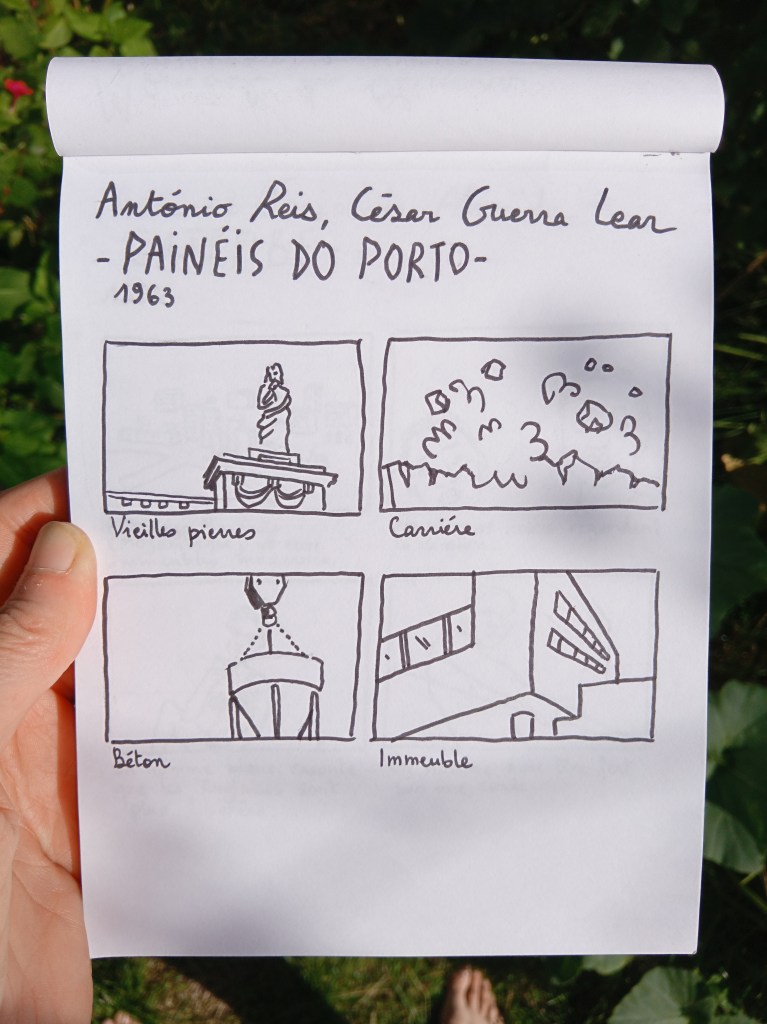 António Reis, César Guerra Lear
- PAINÉIS DO PORTO -
1963
Vieilles pierres
Carriére
Béton
Immeuble